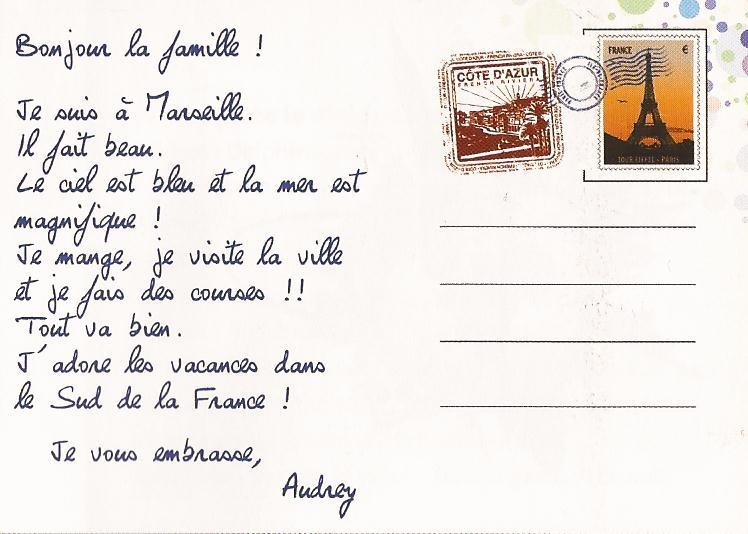 Bonjour la famille !
Je suis à Marseille.
Il fait beau.
Le ciel est bleu et la mer est
magnifique !
Je mange, je visite la ville
et je fais des courses !!
Tout va bien.
J'adore les vacances dans
le Sud de la France !
Je vous embrasse,
Audrey
CÔTE D'AZUR
FRENCH RIVIERA
FRANCE €
TOUR EIFFEL - PARIS